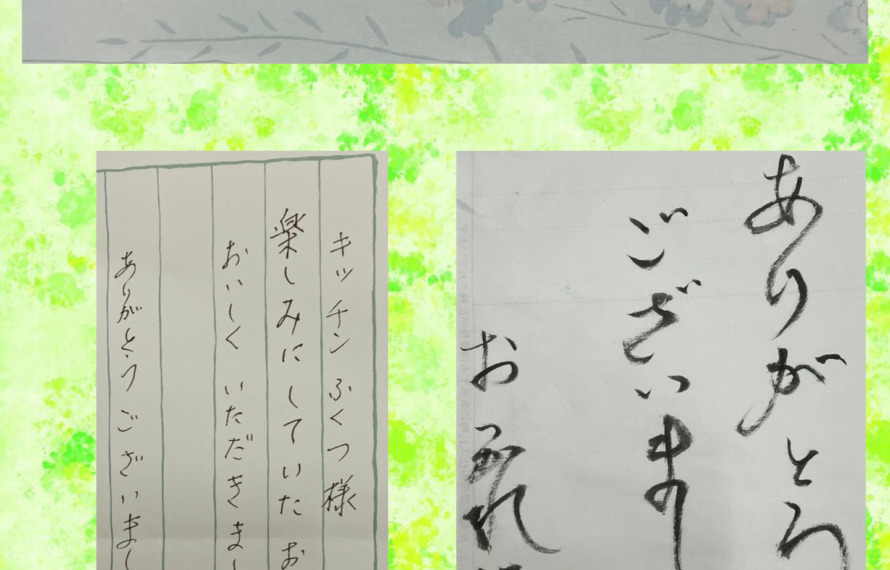 キッチンふくつ様
楽しみにしていたお
おいしくいただきまし
ありがとうございまし
ありがとう
ございまし
お